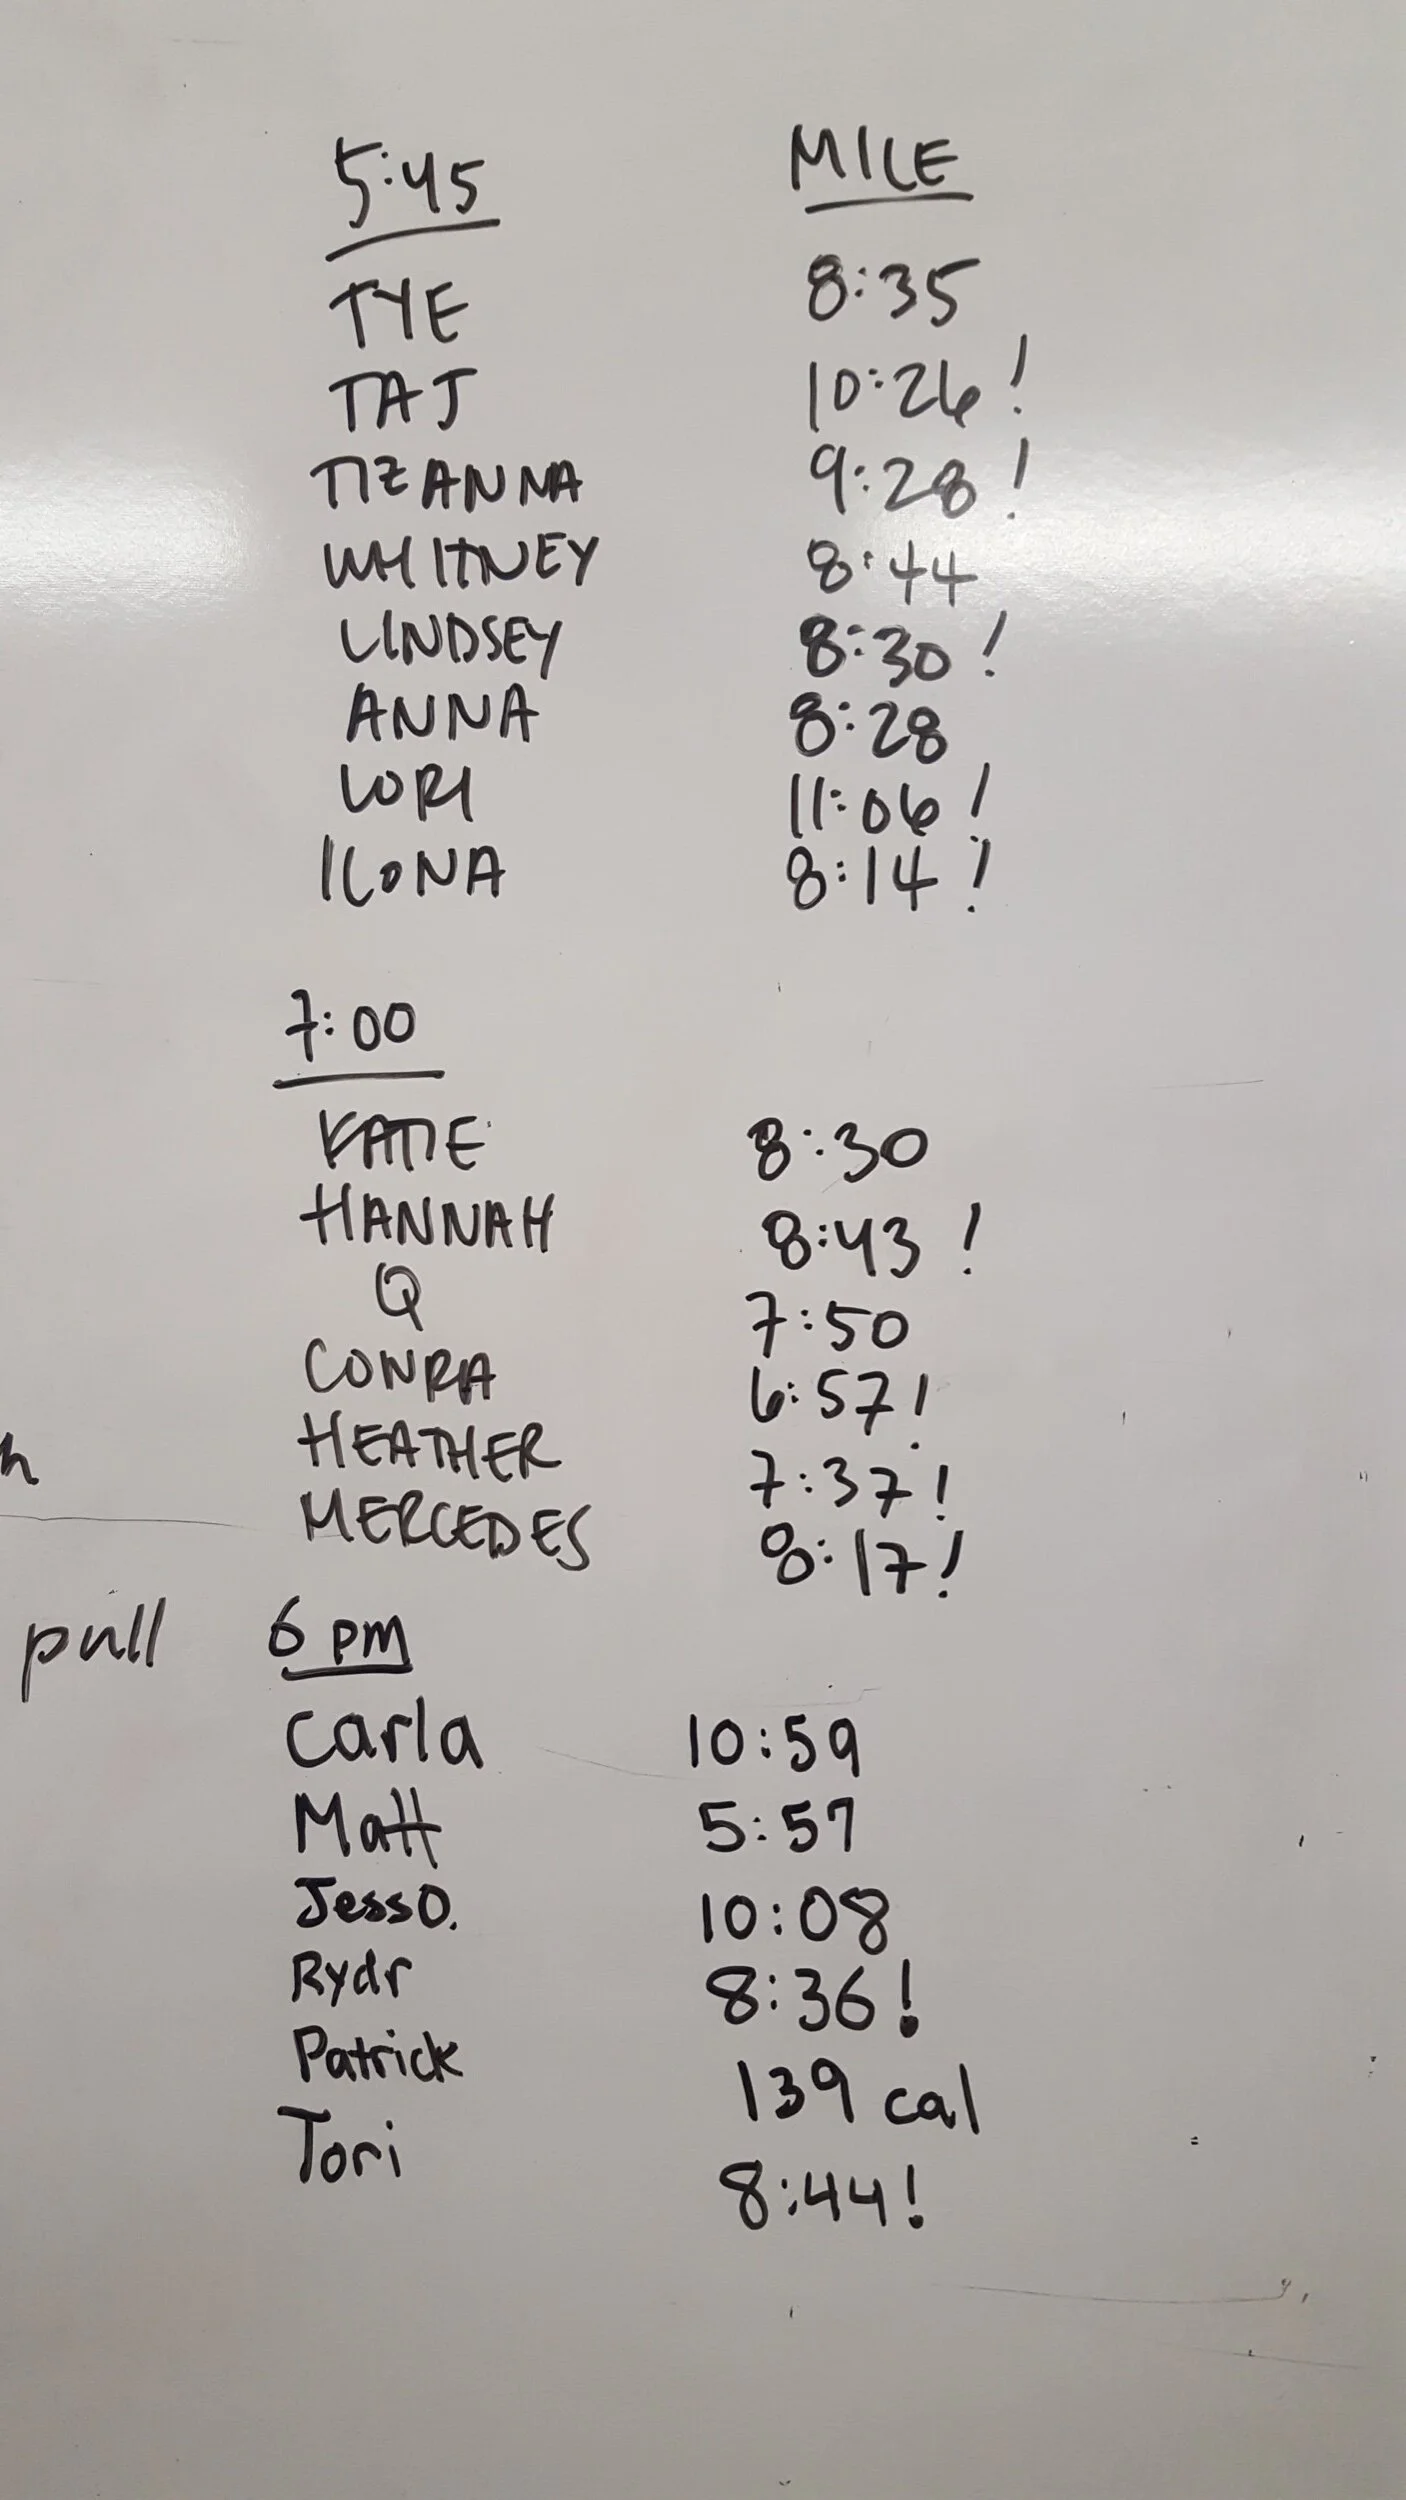 5:45 MILE
TYE 8:35
TAJ 10:26!
TIZANNA 9:28!
WHITNEY 8:44
LINDSEY 8:30!
ANNA 8:28
LORI 11:06!
ILONA 8:14!
7:00
KATIE 8:30
HANNAH 8:43!
Q 7:50
CONRA 6:57!
HEATHER 7:37!
MERCEDES 8:17!
pull 6 pm
Carla 10:59
Matt 5:57
Jess O. 10:08
Rydr 8:36!
Patrick 139 cal
Tori 8:44!